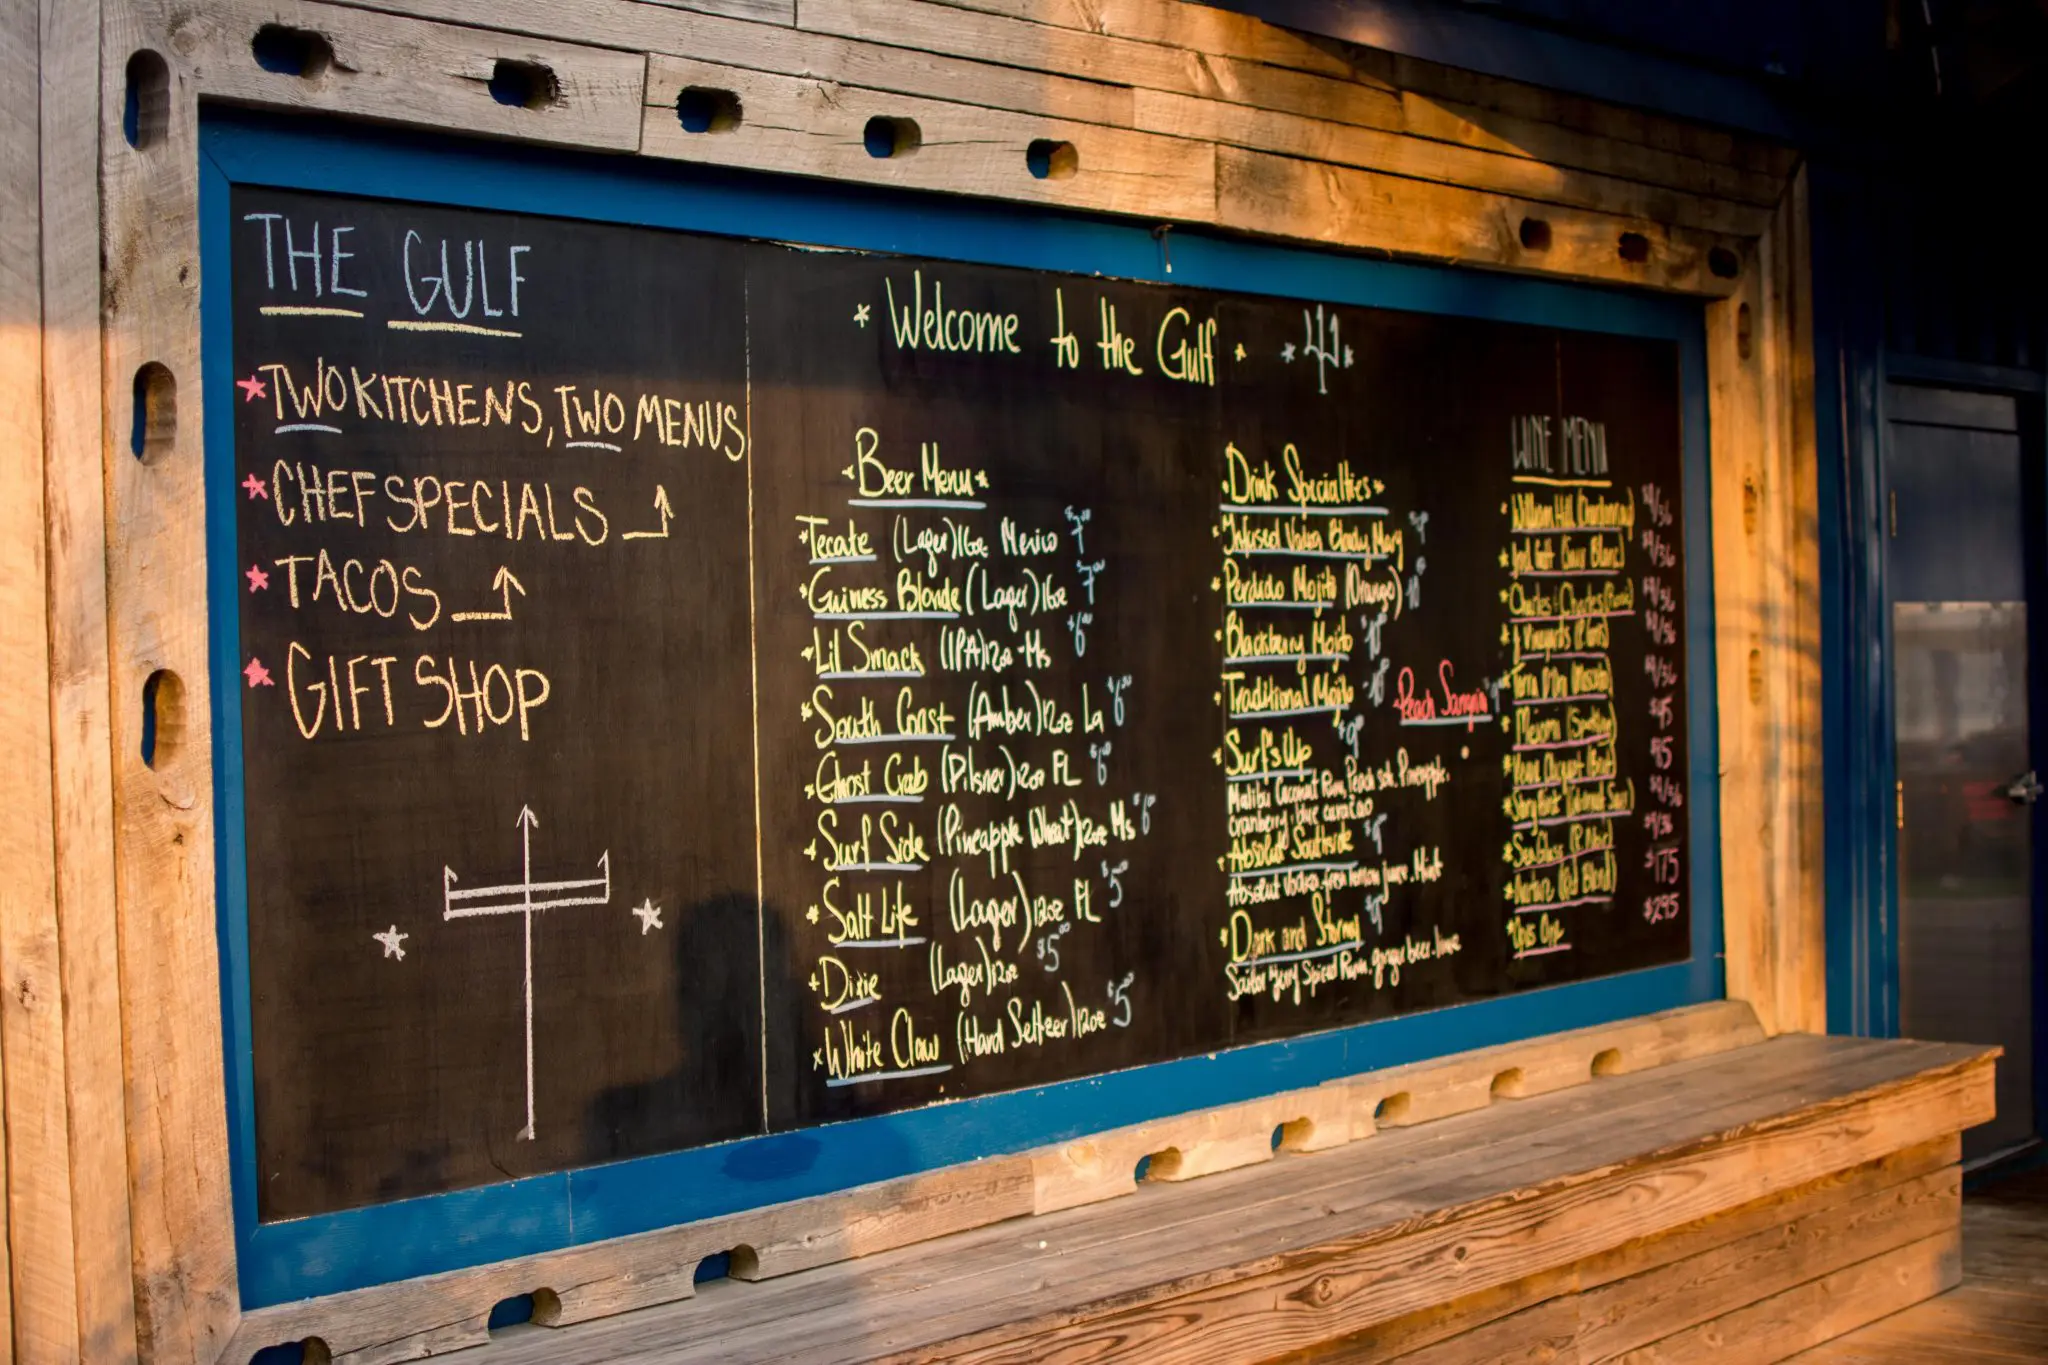 THE GULF
TWO KITCHENS, TWO MENUS
CHEF SPECIALS
TACOS
GIFT SHOP
Welcome to the Gulf
Beer Menu
Tecate (Lager) 16oz Mexico $7.00
Guiness Blonde (Lager) 16oz $7.00
Lil Smack (IPA) 12oz - Ms $6.00
South Coast (Amber) 12oz La $6.00
Ghost Crab (Pilsner) 12oz FL $6.00
Surf Side (Pineapple Wheat) 12oz Ms $6.00
Salt Life (Lager) 12oz FL $5.00
Dixie (Lager) 12oz $5.00
White Claw (Hard Seltzer) 12oz $5.00
Drink Specialties
Infused Vodka Bloody Mary
Perdido Mojito (Orange) $10.00
Blackberry Mojito $10.00
Traditional Mojito $10.00
Peach Sangria
Surf's Up $9.00
Malibu Coconut Rum, Peach sch, Pineapple,
Cranberry, blue curacao
Absolut Southside $9.00
Absolut Vodka, fresh lemon juice, Mint
Dark and Stormy $9.00
Sailor Jerry Spiced Rum, ginger beer, lime
WINE MENU
William Hill (Chardonnay) $9/36
(Sauv Blanc) $9/36
Charles & Charles $9/36
Vineyards (P. Gris) $9/36
Terra (Moscato) $9/36
Meiomi (Sparkling) $45
(Brut)
Story Point (Cabernet Sauv)
Sea Glass (P. Noir) $9/36
(Red Blend) $175
Opus One $295